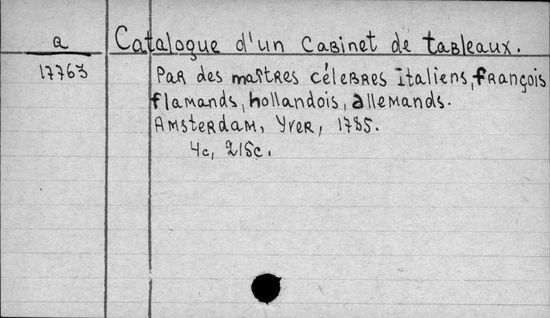 a
Catalogue d'un Cabinet de tableaux.
17763
Par des maîtres célebres Italiens, françois
flamands, hollandois, allemands.
Amsterdam, Yver, 1785.
4c, 215c.